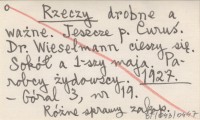 Rzeczy drobne a
ważne. Jeszcze p. Curuś.
Dr. Wieselmann cieszy się.
Sokół a 1-szy maja. Pa-
robcy żydowscy. 1927.
- Góral 3, nr 19.
Różne sprawy